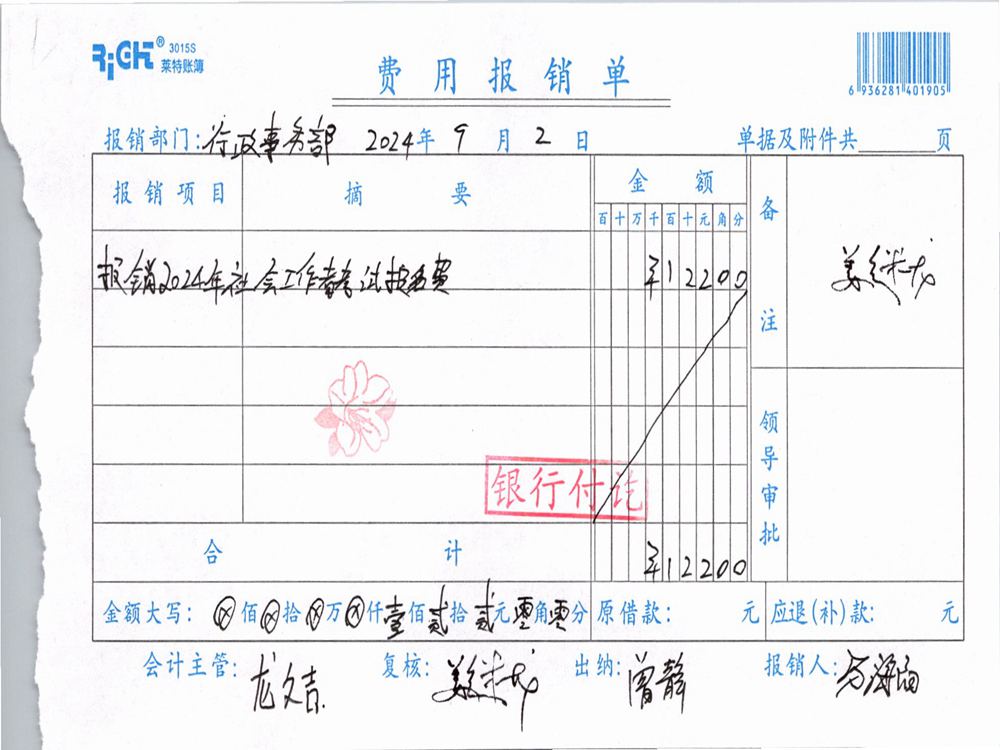 RiGHT® 3015S
莱特账簿
费用报销单
6 936281 401905
报销部门:行政事务部 2024年 9 月 2 日 单据及附件共 页
报销项目 摘要 金额 备注
百 十 万 千 百 十 元 角 分
报销2024年社会工作者考试报名费 ¥12200
银行付讫
合计 ¥12200
领导审批
金额大写: ⊗佰⊗拾⊗万⊗仟壹佰贰拾贰元零角零分 原借款: 元 应退(补)款: 元
会计主管: 龙文吉 复核: 出纳: 曾静 报销人: